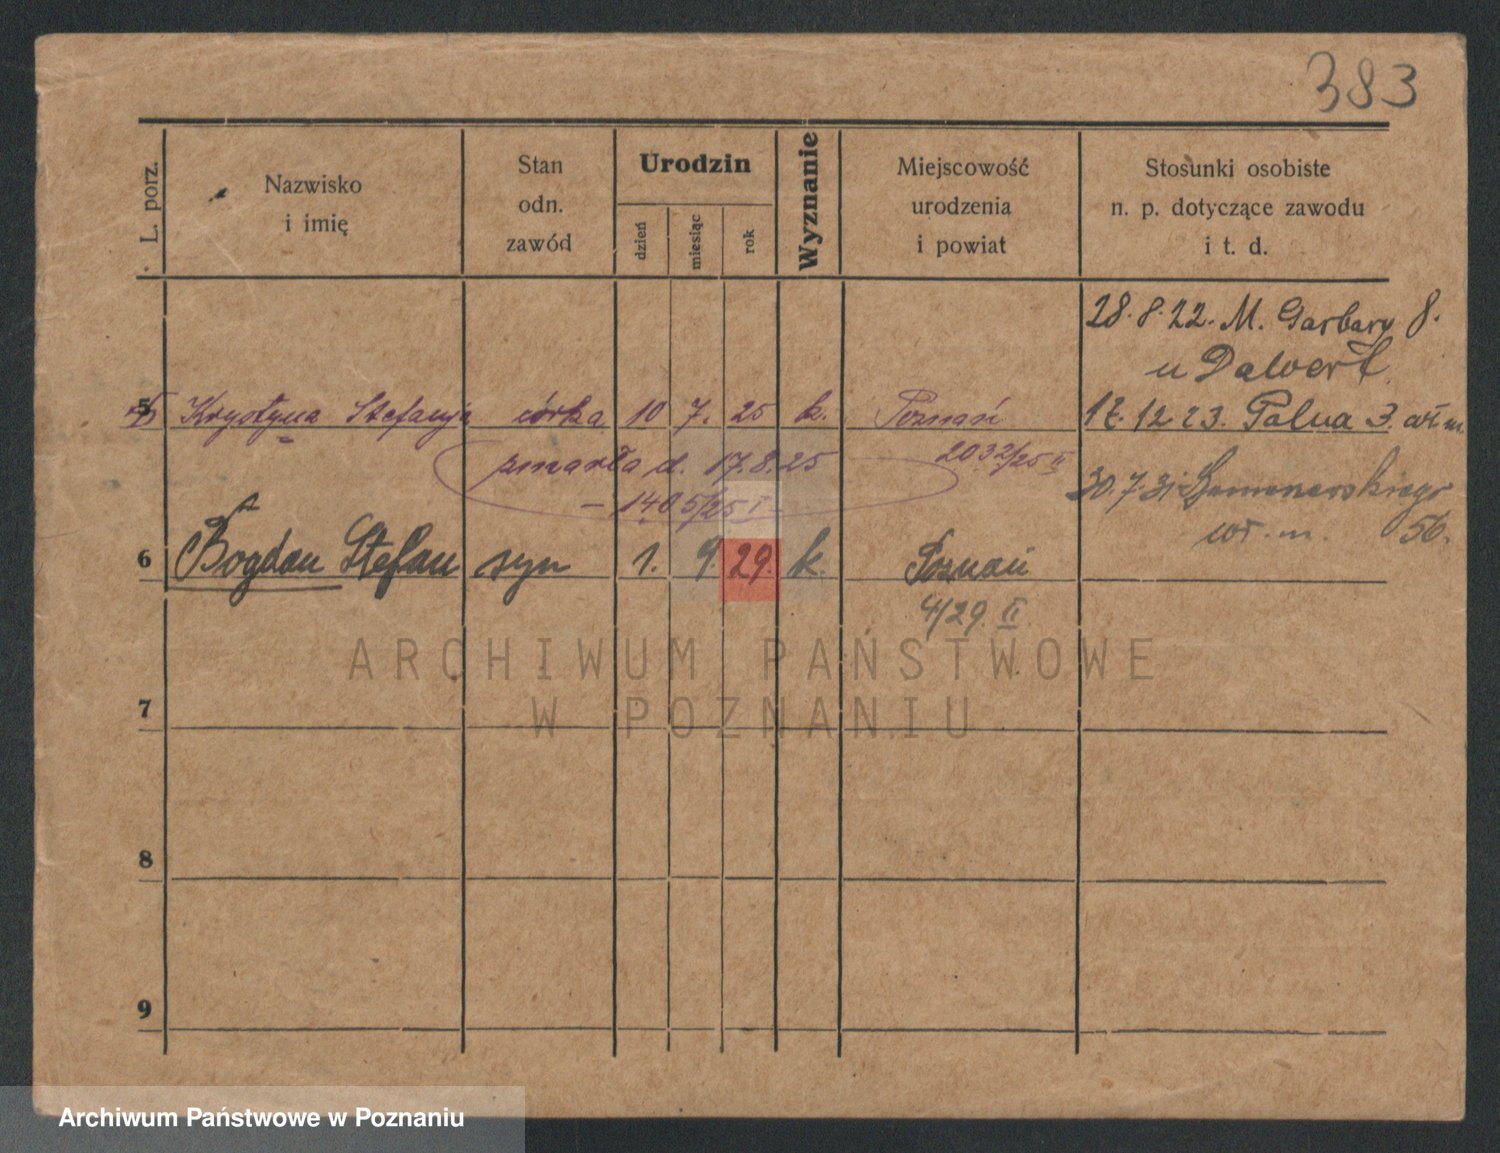 383
L. porz.
Nazwisko
i imię
Stan
odn.
zawód
Urodzin
dzień
miesiąc
rok
Wyznanie
Miejscowość
urodzenia
i powiat
Stosunki osobiste
n. p. dotyczące zawodu
i t. d.
28. 8. 22. M. Garbary 8.
u Dalvert
5 Krystyna Stefanja córka 10 7. 25 k. Poznań
17. 12 23. Palua 3. wł. m.
zmarła d. 17.8.25
2032/25 II
– 1405/25 I
30. 7. 31
wł. m. 56.
6 Bogdan Stefan syn 1. 9. 29. k. Poznań
4/29. II
ARCHIWUM PAŃSTWOWE
W POZNANIU
7
8
9
Archiwum Państwowe w Poznaniu